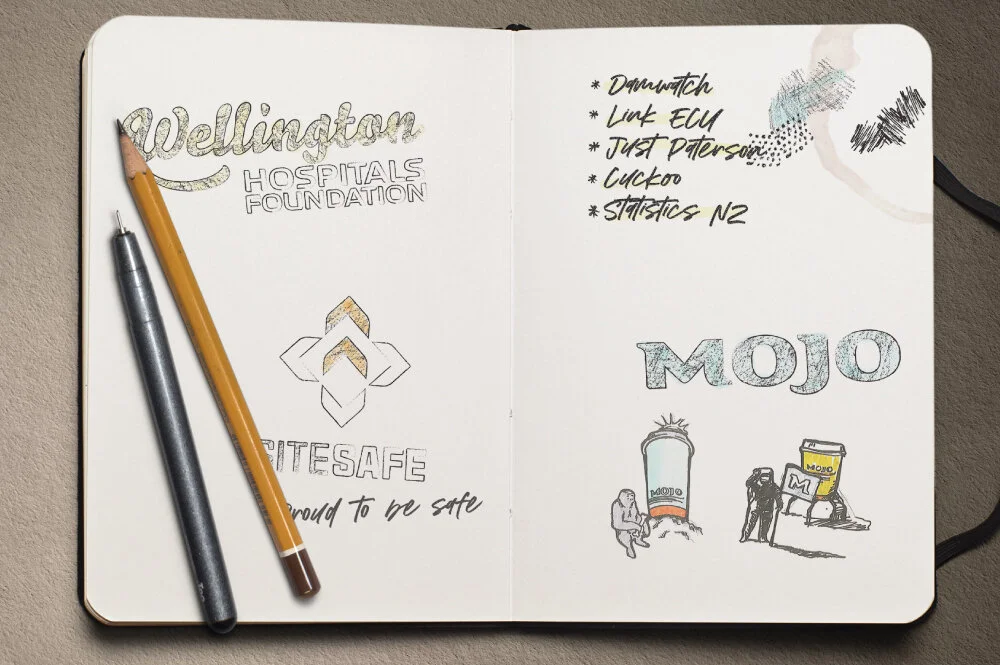 Wellington
HOSPITALS
FOUNDATION
SITESAFE
Proud to be safe
* Damwatch
* Link ECU
* Just Paterson
* Cuckoo
* Statistics NZ
MOJO
MOJO
MOJO
M